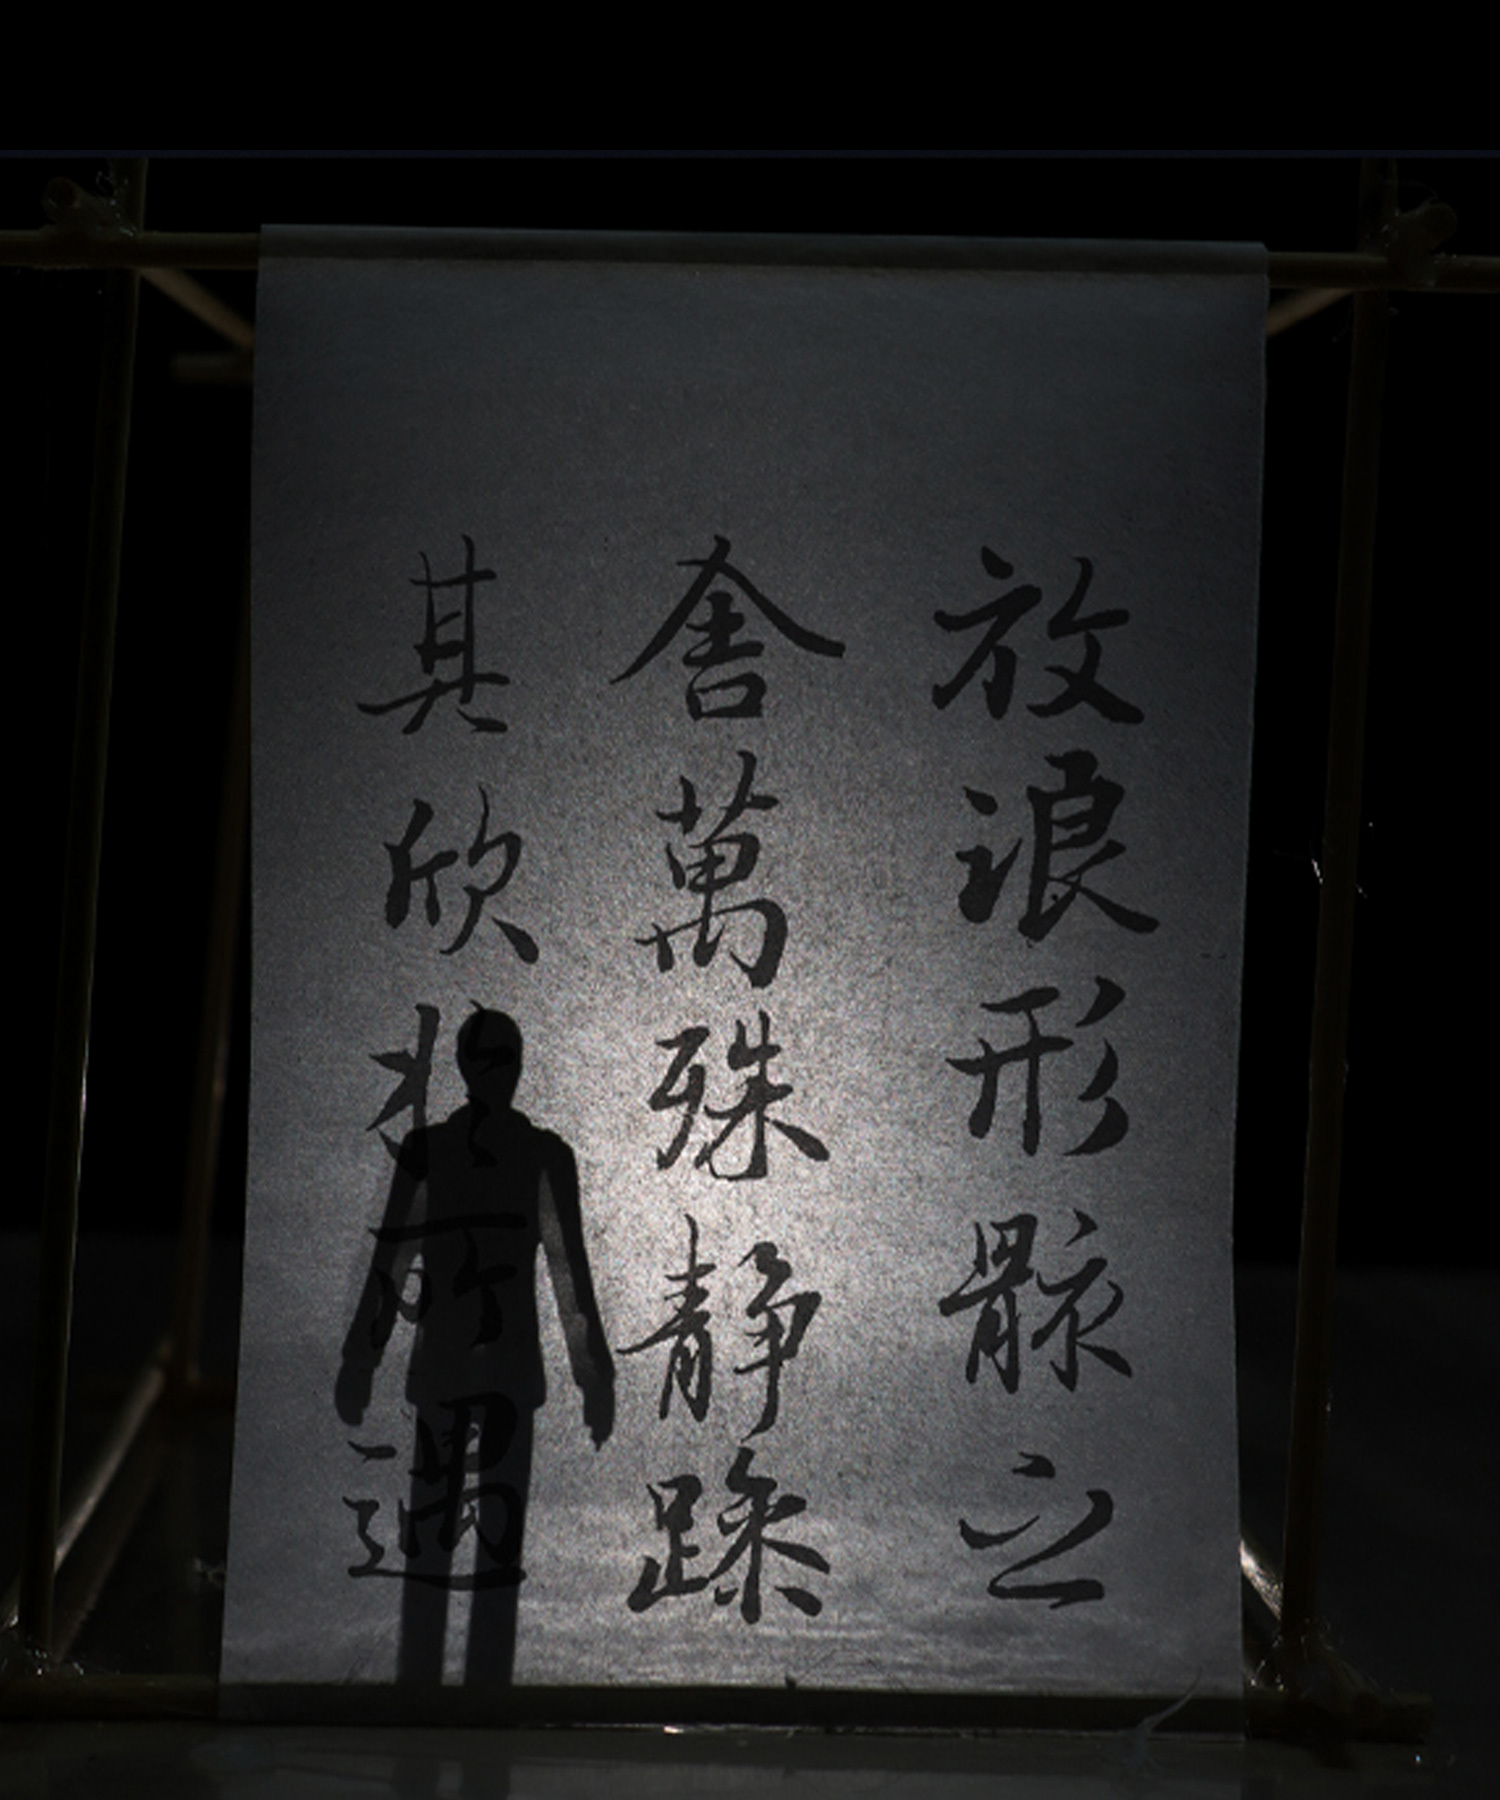 放浪形骸之
舍萬殊静躁
其欣於所遇